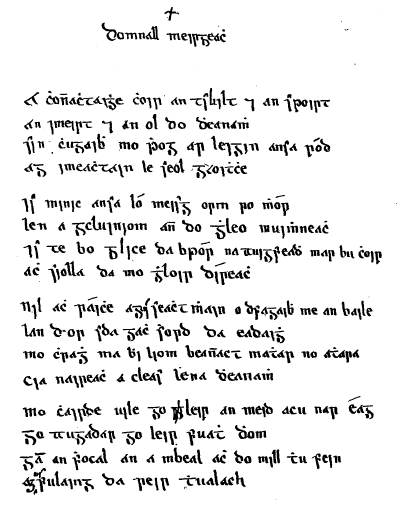 Domnall meirgeaċ
A ċon̄aċtaiġe ċoir an tsuilt ⁊ an spoirt
an imeirt ⁊ an ol do ḋeanaṁ
sin ċugaiḃ mo ṗog ar leigin ansa ród
ag imeaċtain le seol gaoiṫċe
Is minic ansa ló meisg orm ro ṁór
len a gcluiniom an̄ do ġleo muirinneaċ
is te bo glice da brón na tuigfeaḋ mar bu ċoir
aċ siolla da mo ġloir díreaċ
Nil aċ ráiċe seaċt ṁain o dfagaiḃ me an baile
lan d·or sda gaċ sord da eadaiġ
mo ċraġ ma ḃi liom bean̄aċt mataṙ no atara
cia naireaċ a cleas lena ḋeanaṁ
mo ċairde uile go leir an meid acu nar éag
go ttugadar go leir fuaṫ ḋom
gā an focal an a mbeal aċ do mill tu fein
fulaing da reir tualach